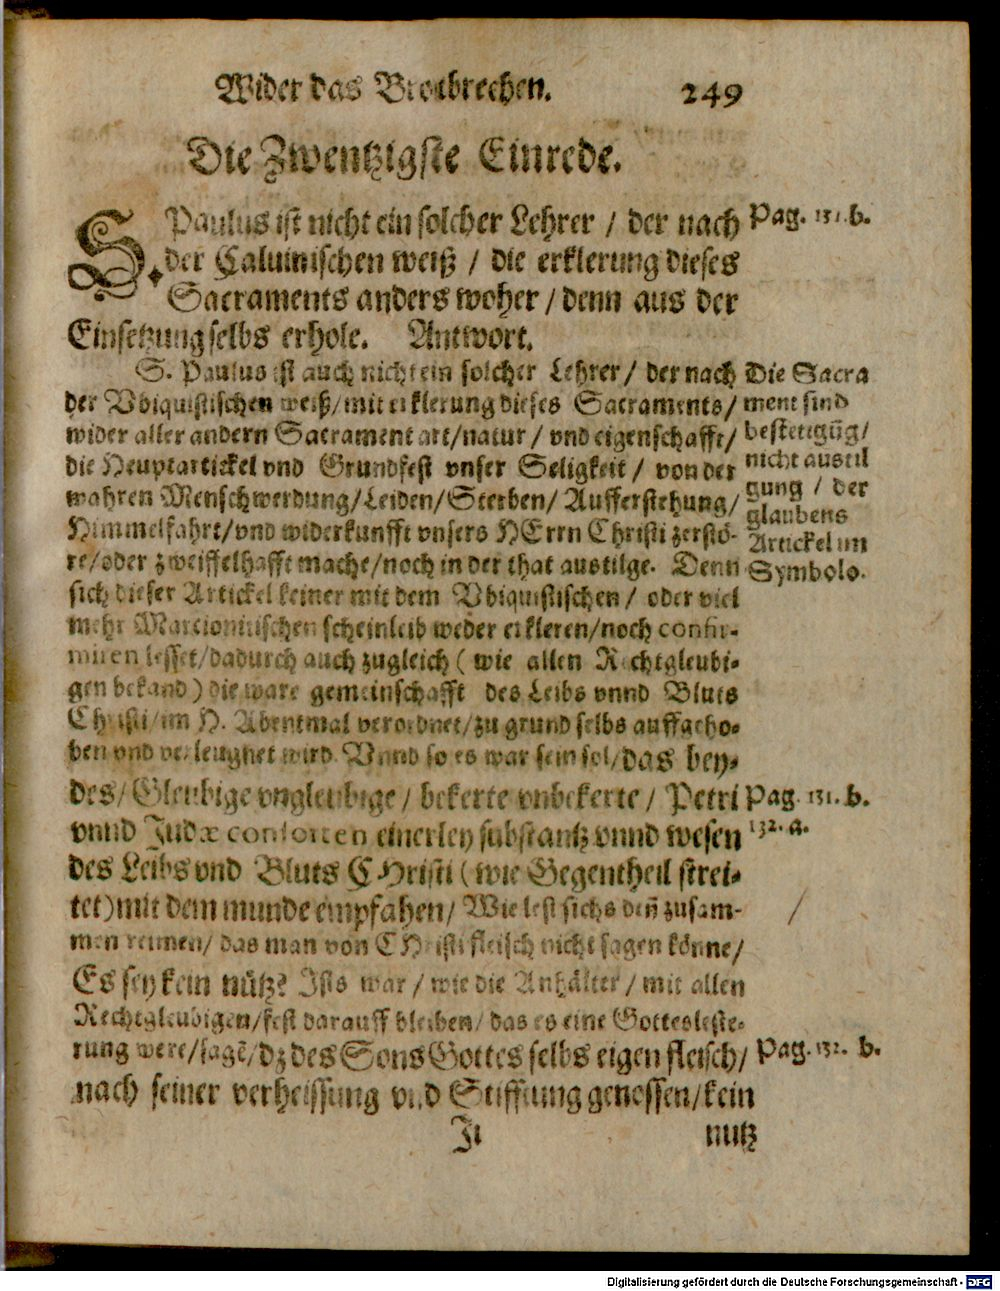 Wider das Brotbrechen. 249
Die Zwentzigste Einrede.
S. Paulus ist nicht ein solcher Lehrer / der nach
der Caluinischen weiß / die erklerung dieses
Sacraments anders woher / denn aus der
Einsetzung selbs erhole. Antwort.
Pag. 131. b.
S. Paulus ist auch nicht ein solcher Lehrer / der nach
der Vbiquistischen weiß / mit erklerung dieses Sacraments /
wider aller andern Sacrament art / natur / vnd eigenschafft /
die Heuptartickel vnd Grundfest vnser Seligkeit / von der
wahren Menschwerdung / Leiden / Sterben / Aufferstehung /
Himmelfahrt / vnd widerkunfft vnsers HErrn Christi zerstö-
re / oder zweiffelhafft mache / noch in der that austilge. Denn
sich dieser Artickel keiner mit dem Vbiquistischen / oder viel
mehr Marcionitischen scheinleib weder erkleren / noch confir-
miren lesset / dadurch auch zugleich ( wie allen Rechtgleubi-
gen bekand ) die ware gemeinschafft des Leibs vnnd Bluts
Christi / im H. Abentmal verordnet / zu grund selbs auffgeho-
ben vnd verleugnet wird. Vnnd so es war sein sol / das bey-
Die Sacra
ment sind
bestetigūg /
nicht austil
gung / der
glaubens
Artickel im
Symbolo.
des / Gleubige vngleubige / bekerte vnbekerte / Petri
vnnd Judæ consorten einerley substantz vnnd wesen
des Leibs vnd Bluts CHristi ( wie Gegentheil strei-
tet ) mit dem munde empfahen / Wie lest sichs deñ zusam-
men reimen / das man von CHristi fleisch nicht sagen könne /
Es sey kein nütz? Ists war / wie die Anhälter / mit allen
Rechtgleubigen / fest darauff bleiben / das es eine Gottesleste-
rung were / sagē / dz des Sons Gottes selbs eigen fleisch /
nach seiner verheissung vnd Stifftung genossen / kein
Pag. 131. b.
132. a.
/
Pag. 132. b.
Ii nutz
Digitalisierung gefördert durch die Deutsche Forschungsgemeinschaft - DFG